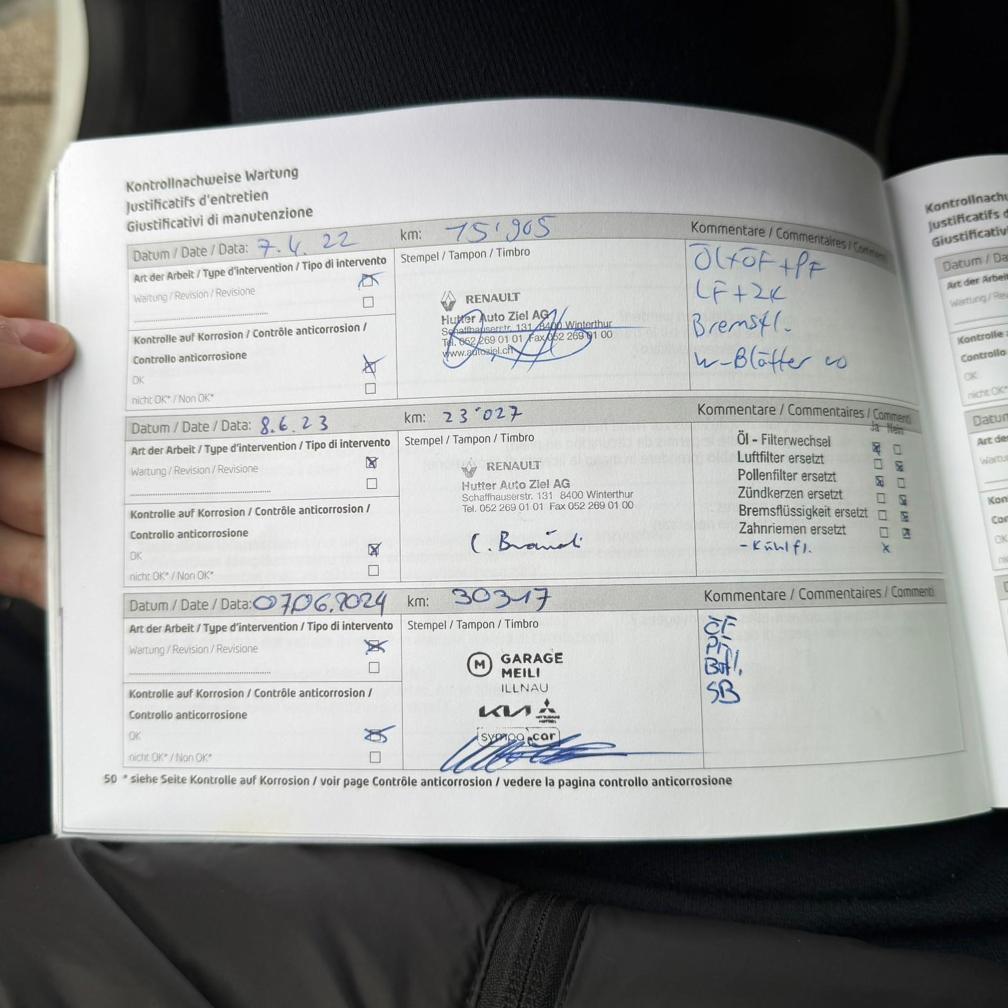 Kontrollnachweise Wartung
Justificatifs d'entretien
Giustificativi di manutenzione
Datum / Date / Data: 7.4.22 km: 15'905 Kommentare / Commentaires /
Art der Arbeit / Type d'intervention / Tipo di intervento Stempel / Tampon / Timbro
Wartung / Revision / Revisione
Kontrolle auf Korrosion / Contrôle anticorrosion /
Controllo anticorrosione
OK
nicht OK* / Non OK*
RENAULT
Hutter Auto Ziel AG
Schaffhauserstr. 131 8400 Winterthur
Tel. 052 269 01 01 Fax 052 269 01 00
www.autoziel.ch
Öl+ÖF+PF
LF+ZK
Bremsfl.
W-Blätter
Datum / Date / Data: 8.6.23 km: 23'027 Kommentare / Commentaires / Commenti
Art der Arbeit / Type d'intervention / Tipo di intervento Stempel / Tampon / Timbro
Wartung / Revision / Revisione
Kontrolle auf Korrosion / Contrôle anticorrosion /
Controllo anticorrosione
OK
nicht OK* / Non OK*
RENAULT
Hutter Auto Ziel AG
Schaffhauserstr. 131 8400 Winterthur
Tel. 052 269 01 01 Fax 052 269 01 00
Ja Nein
Öl - Filterwechsel
Luftfilter ersetzt
Pollenfilter ersetzt
Zündkerzen ersetzt
Bremsflüssigkeit ersetzt
Zahnriemen ersetzt
- Kühlfl. x
Datum / Date / Data: 07.06.2024 km: 30317 Kommentare / Commentaires / Commenti
Art der Arbeit / Type d'intervention / Tipo di intervento Stempel / Tampon / Timbro
Wartung / Revision / Revisione
Kontrolle auf Korrosion / Contrôle anticorrosion /
Controllo anticorrosione
OK
nicht OK* / Non OK*
M GARAGE
MEILI
ILLNAU
KIA
ÖF
PF
SB
50 * siehe Seite Kontrolle auf Korrosion / voir page Contrôle anticorrosion / vedere la pagina controllo anticorrosione
Justificatifs
Datum / Da
Wartung /
Kontrolle
Controllo
OK